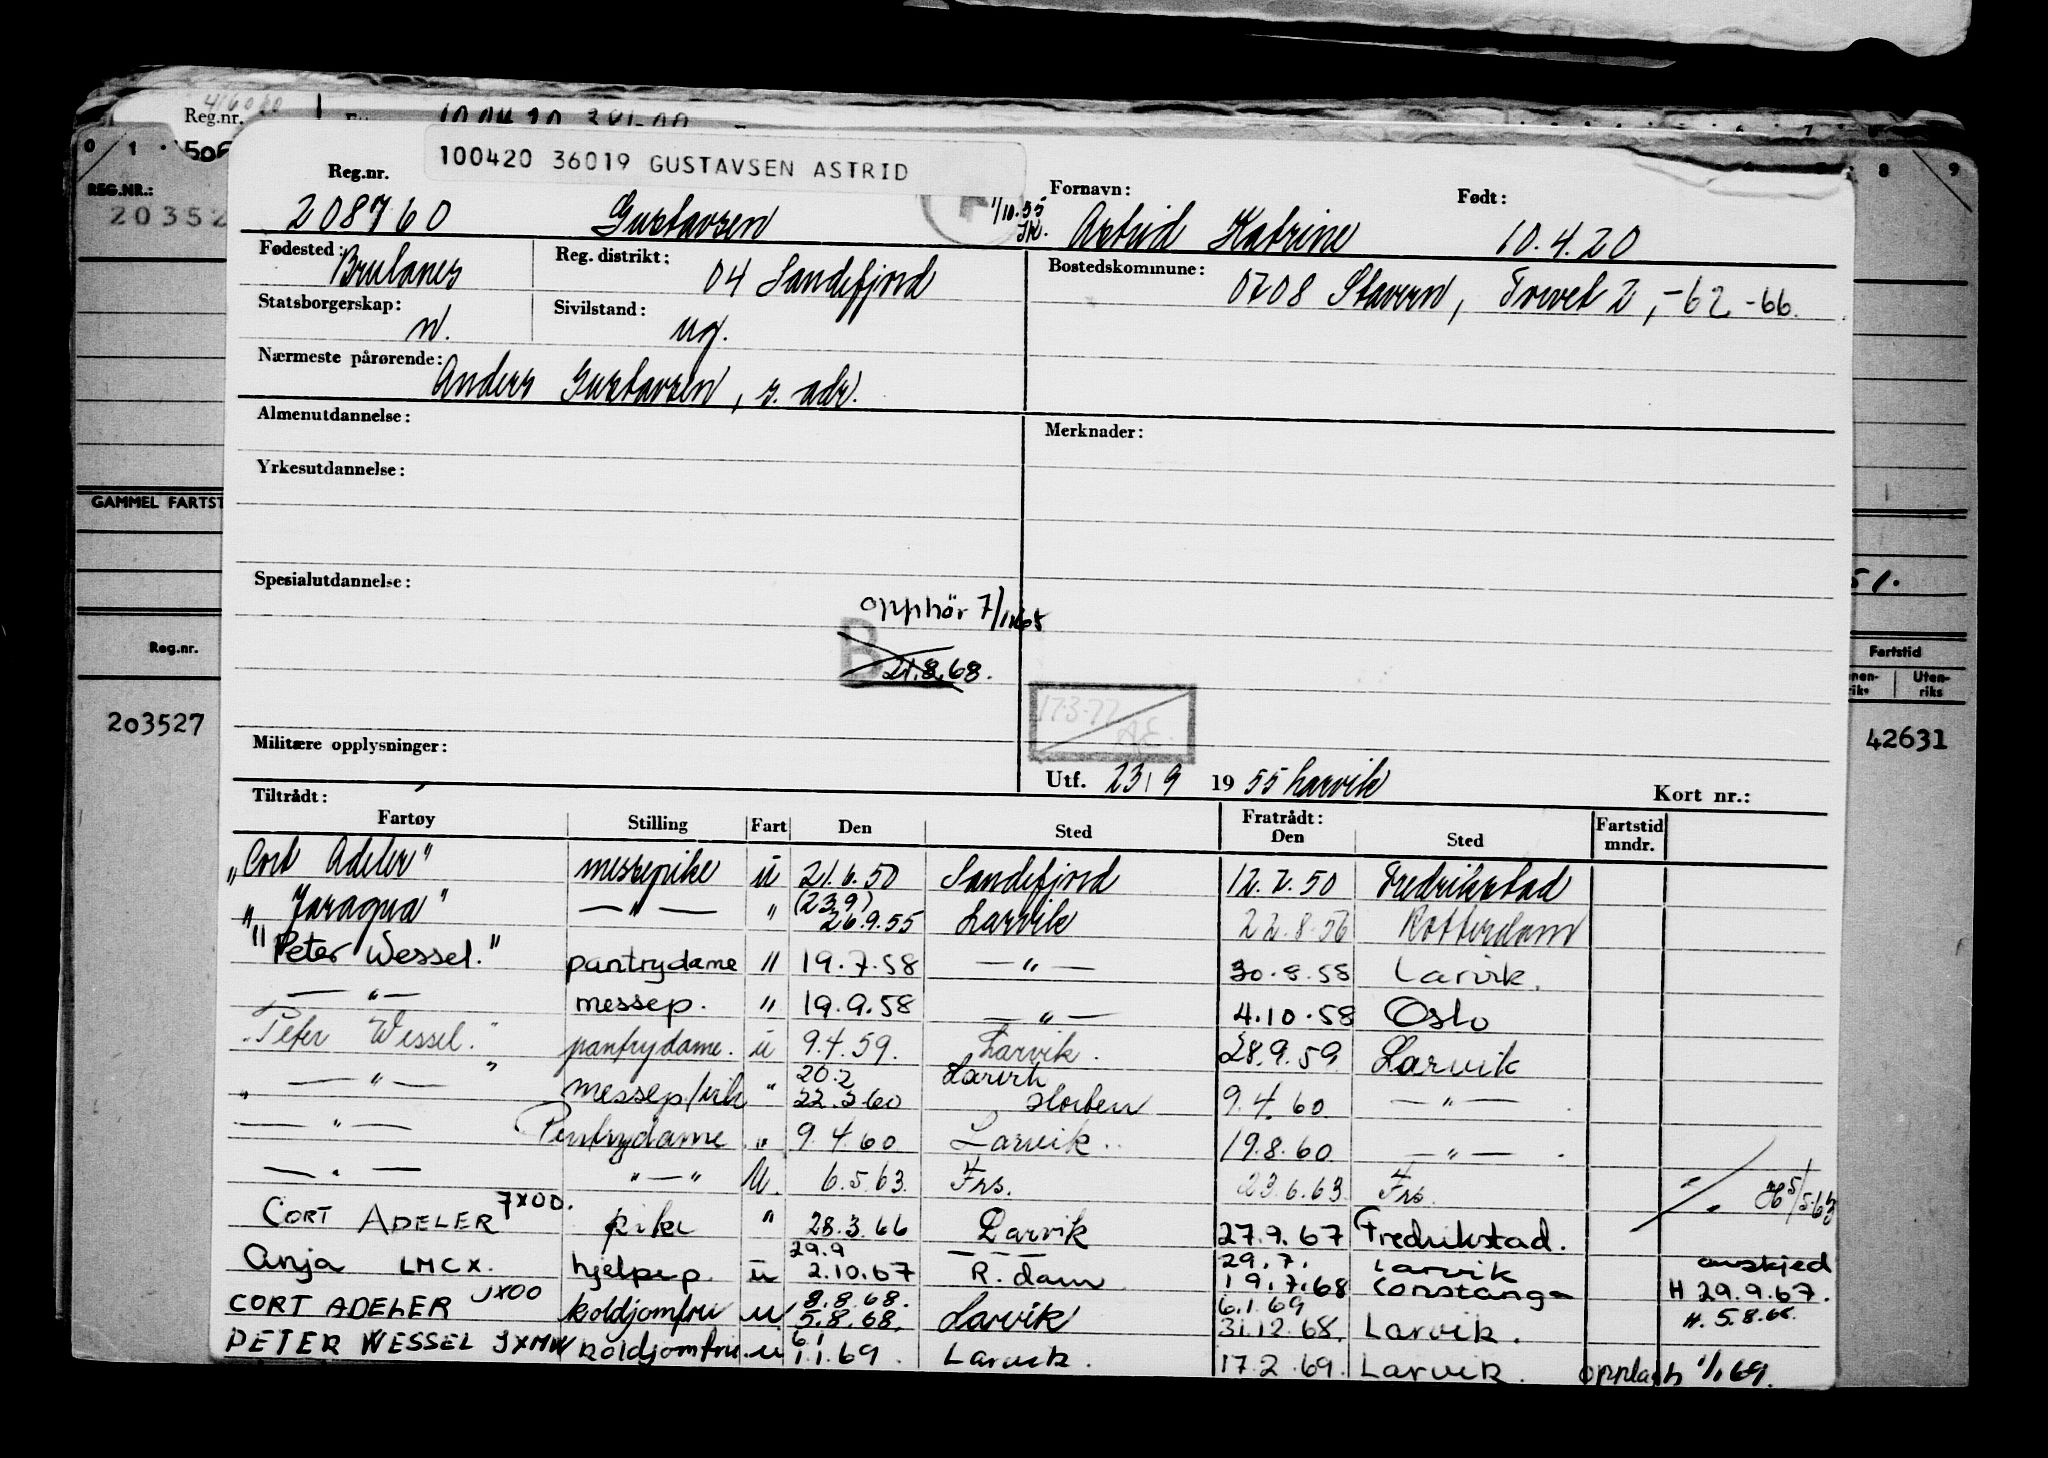 Reg.nr.
0 1
REG.NR.:
20352
100420 36019 GUSTAVSEN ASTRID
Reg.nr. Fornavn: Født:
208760 Gustavsen 1/10.55 Astrid Katrine 10.4.20
Fødested: Brulanes Reg. distrikt: 04 Sandefjord Bostedskommune: 0708 Stavern, Torvet 2, -62 -66.
Statsborgerskap: n. Sivilstand: ug.
Nærmeste pårørende: Anders Gustavsen, s. adr.
Almenutdannelse: Merknader:
Yrkesutdannelse:
GAMMEL FARTST
Spesialutdannelse:
opphör 7/1165
B 21.8.68.
Reg.nr. Fartstid
Uten-
riks
203527 17.3.77 AE. 42631
Militære opplysninger:
Utf. 23/9 1955 Larvik Kort nr.:
Tiltrådt: Fratrådt:
Fartøy Stilling Fart Den Sted Den Sted Fartstid mndr.
"Cort Adeler" messepike u 21.6.50 Sandefjord 12.7.50 Fredrikstad
"Jaragua" — " — " (23.9) 26.9.55 Larvik 22.8.56 Rotterdam
"Peter Wessel." pantrydame " 19.7.58 — " — 30.8.58 Larvik.
— " — messep. " 19.9.58 — " — 4.10.58 Oslo
"Peter Wessel." pantrydame. u 9.4.59. Larvik. 28.9.59 Larvik
" — " — " messep/vik " 20.2 22.3.60 Larvik Horten 9.4.60 — " — .
— " — Pantrydame " 9.4.60 Larvik. 19.8.60 — " — .
— " — " — " U. 6.5.63. Frs. 23.6.63. Frs. H 5/5.63
CORT ADELER JXOO. pike " 28.3.66 Larvik 27.9.67 Fredrikstad.
Anja LMCX. hjelpep. u 29.9 2.10.67 R.dam 29.7. 19.7.68 Larvik Constanga avskjed H 29.9.67.
CORT ADELER JXOO koldjomfru u 8.8.68. 5.8.68. Larvik 6.1.69 31.12.68. Larvik. H. 5.8.68.
PETER WESSEL JXMW koldjomfru u 6.1 1.1.69. Larvik. 17.2.69. Larvik. opplagh 1/1 69.